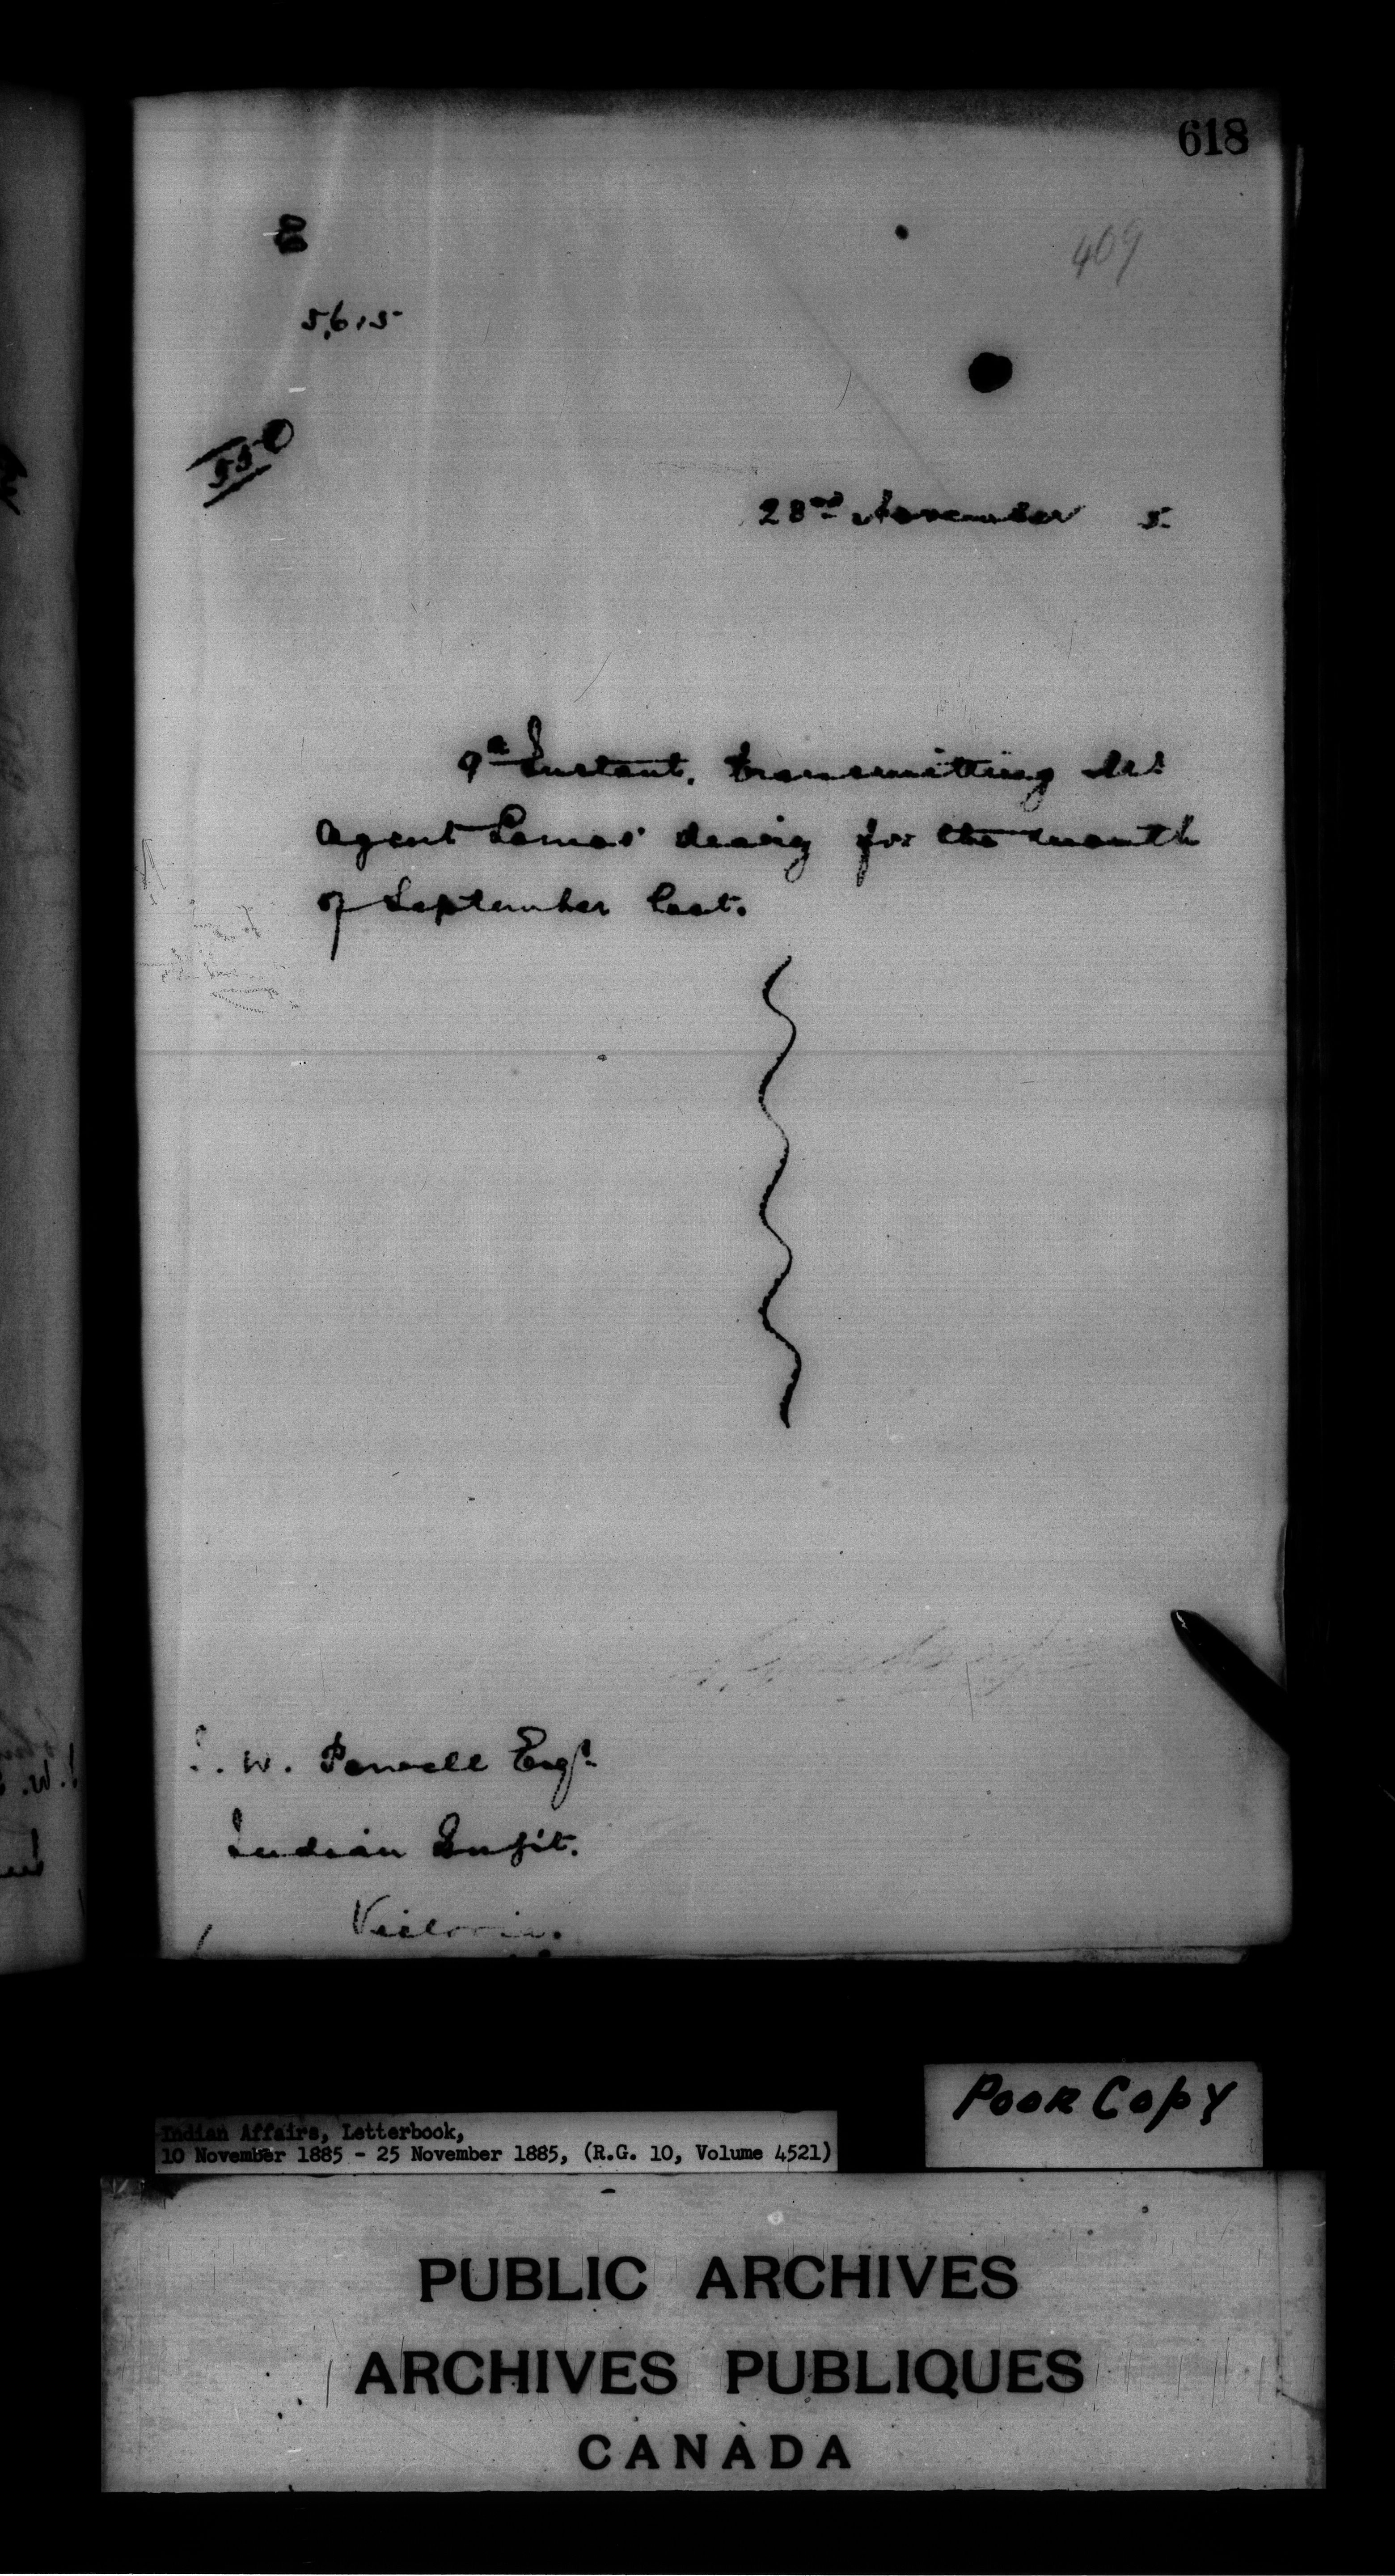 618
409
5,615
550
23rd November 5
9th Instant, transmitting Mr
Agent Lomas' deaiy for the month
of September last.
I. W. Powell Esqr.
Indian Supt.
Victoria.
Poor Copy
Indian Affairs, Letterbook,
10 November 1885 - 25 November 1885, (R.G. 10, Volume 4521)
PUBLIC ARCHIVES
ARCHIVES PUBLIQUES
CANADA